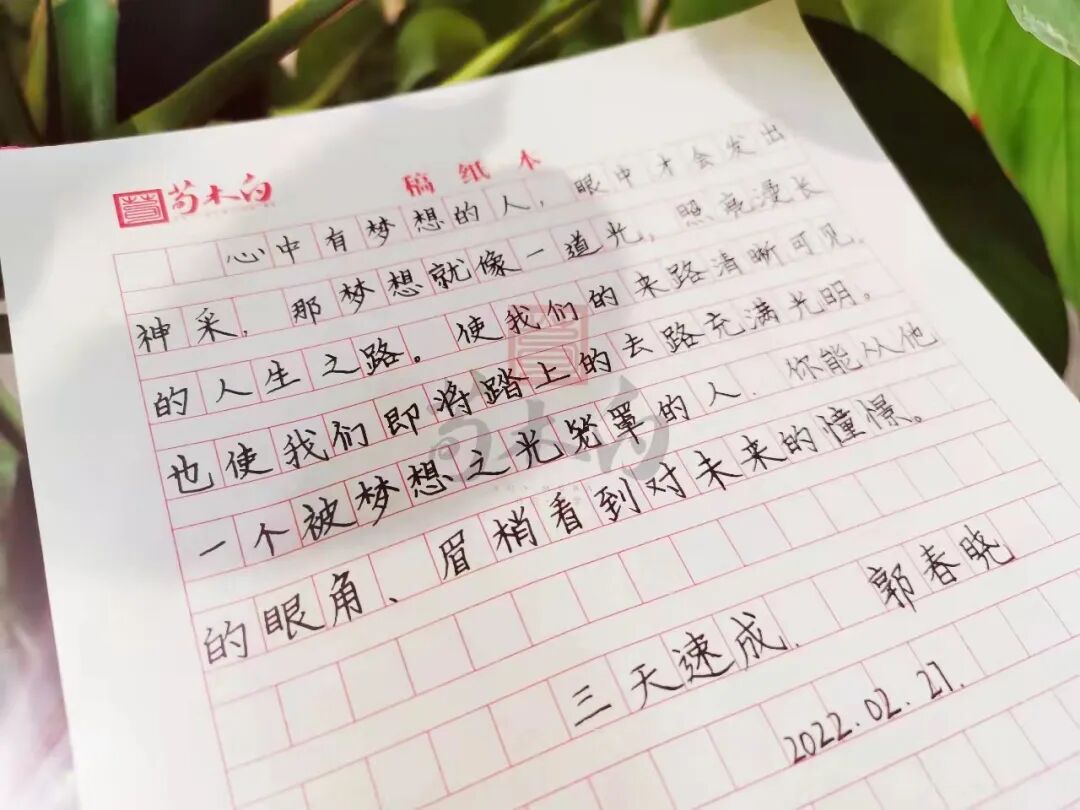 苟木白
稿纸本
心中有梦想的人，眼中才会发出
神采，那梦想就像一道光，照亮漫长
的人生之路。使我们的来路清晰可见，
也使我们即将踏上的去路充满光明。
一个被梦想之光笼罩的人，你能从他
的眼角、眉梢看到对未来的憧憬。
三天速成. 郭春晓
2022.02.27.
苟木白